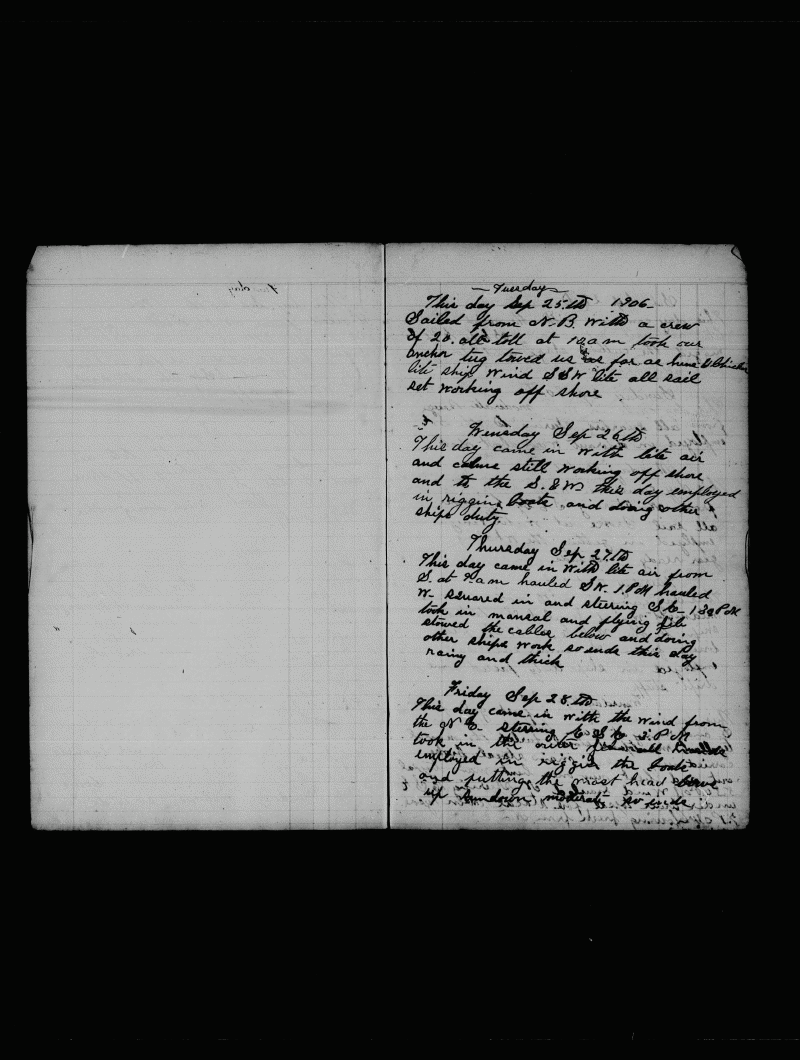 Tuesday
This day Sep 25.th 1906
Sailed from N.B. With a crew
of 20. all toll at 10 a m took our
anchor tug towed us as far as hene & Chicken
lite ship Wind SSW lite all sail
set working off shore
Wensday Sep 26th
This day came in With lite air
and calms still Working off shore
and to the S. & W this day employed
in riggin boats and doing other
ships duty
Thursday Sep 27.th
This day came in With lite air from
S. at 9 a m hauled SW. 1 P M hauled
W- squared in and steering S E- 1 30 P M
took in mansal and flying jib
stowed the cables below and doing
other ships Work so ends this day
rainy and thick
Friday Sep 28.th
This day came in With the Wind from
the N E- sterring E S E 3. P M
took in the
employed in riggin the boats
and putting the mast head
up sundown moderat so ends